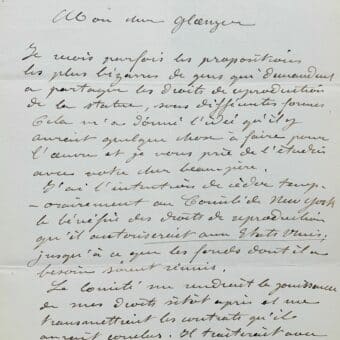 Mon cher Glaenzer
Je reçois parfois les propositions
les plus bizarres de gens qui demandent
à partager les droits de reproduction
de la statue, sous différentes formes
Cela m'a donné l'idée qu'il y
aurait quelque chose à faire pour
l'œuvre et je vous prie de l'étudier
avec votre cher beau-père.
J'ai l'intention de céder temp-
-orairement au Comité de New York
le bénéfice des droits de reproduction
qu'il autoriserait aux Etats Unis,
jusqu'à ce que les fonds dont il a
besoin soient réunis.
Le Comité me rendrait la jouissance
de mes droits sitôt après et me
transmettrait les contrats qu'il
aurait conclus. Il traiterait avec